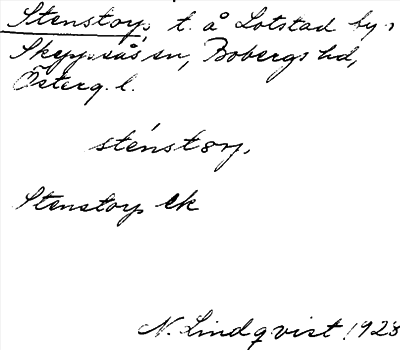 Stenstorp, t. å Lotstad by,
Skeppsås sn, Bobergs hd,
Österg. l.
sténstorp.
Stenstorp ek
N. Lindqvist 1928